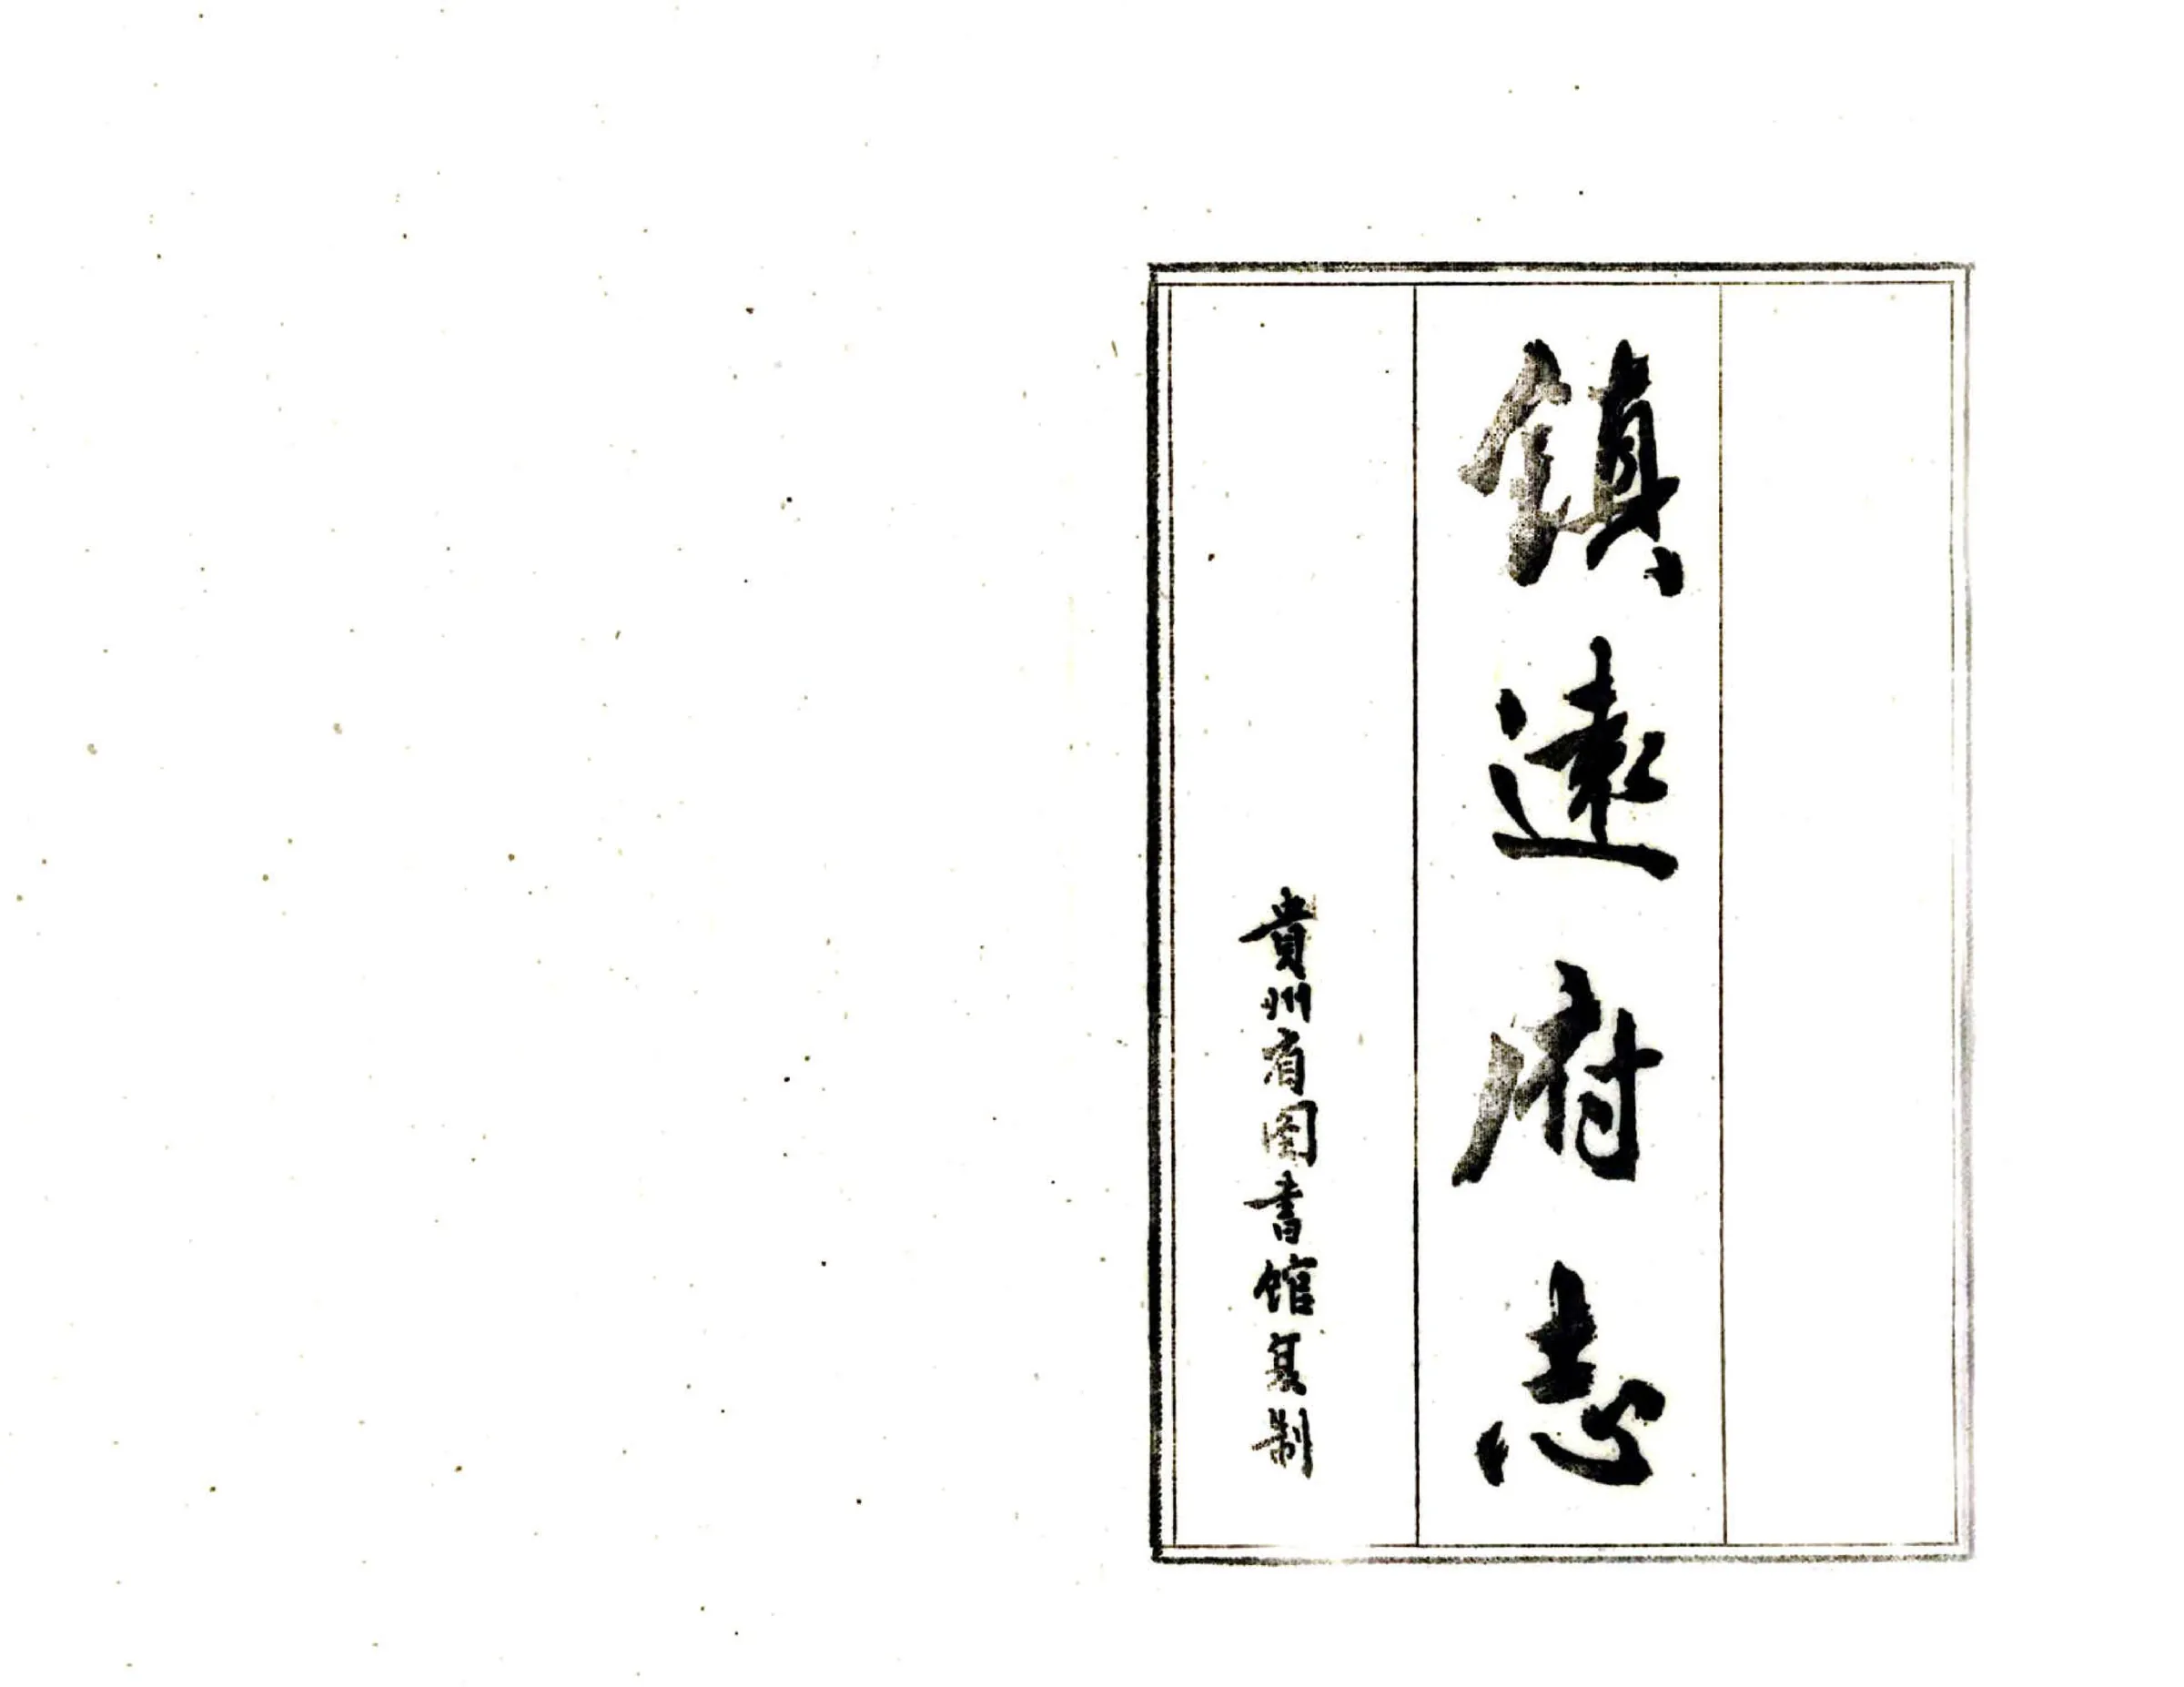 鎮遠府志
貴州省图書館复制